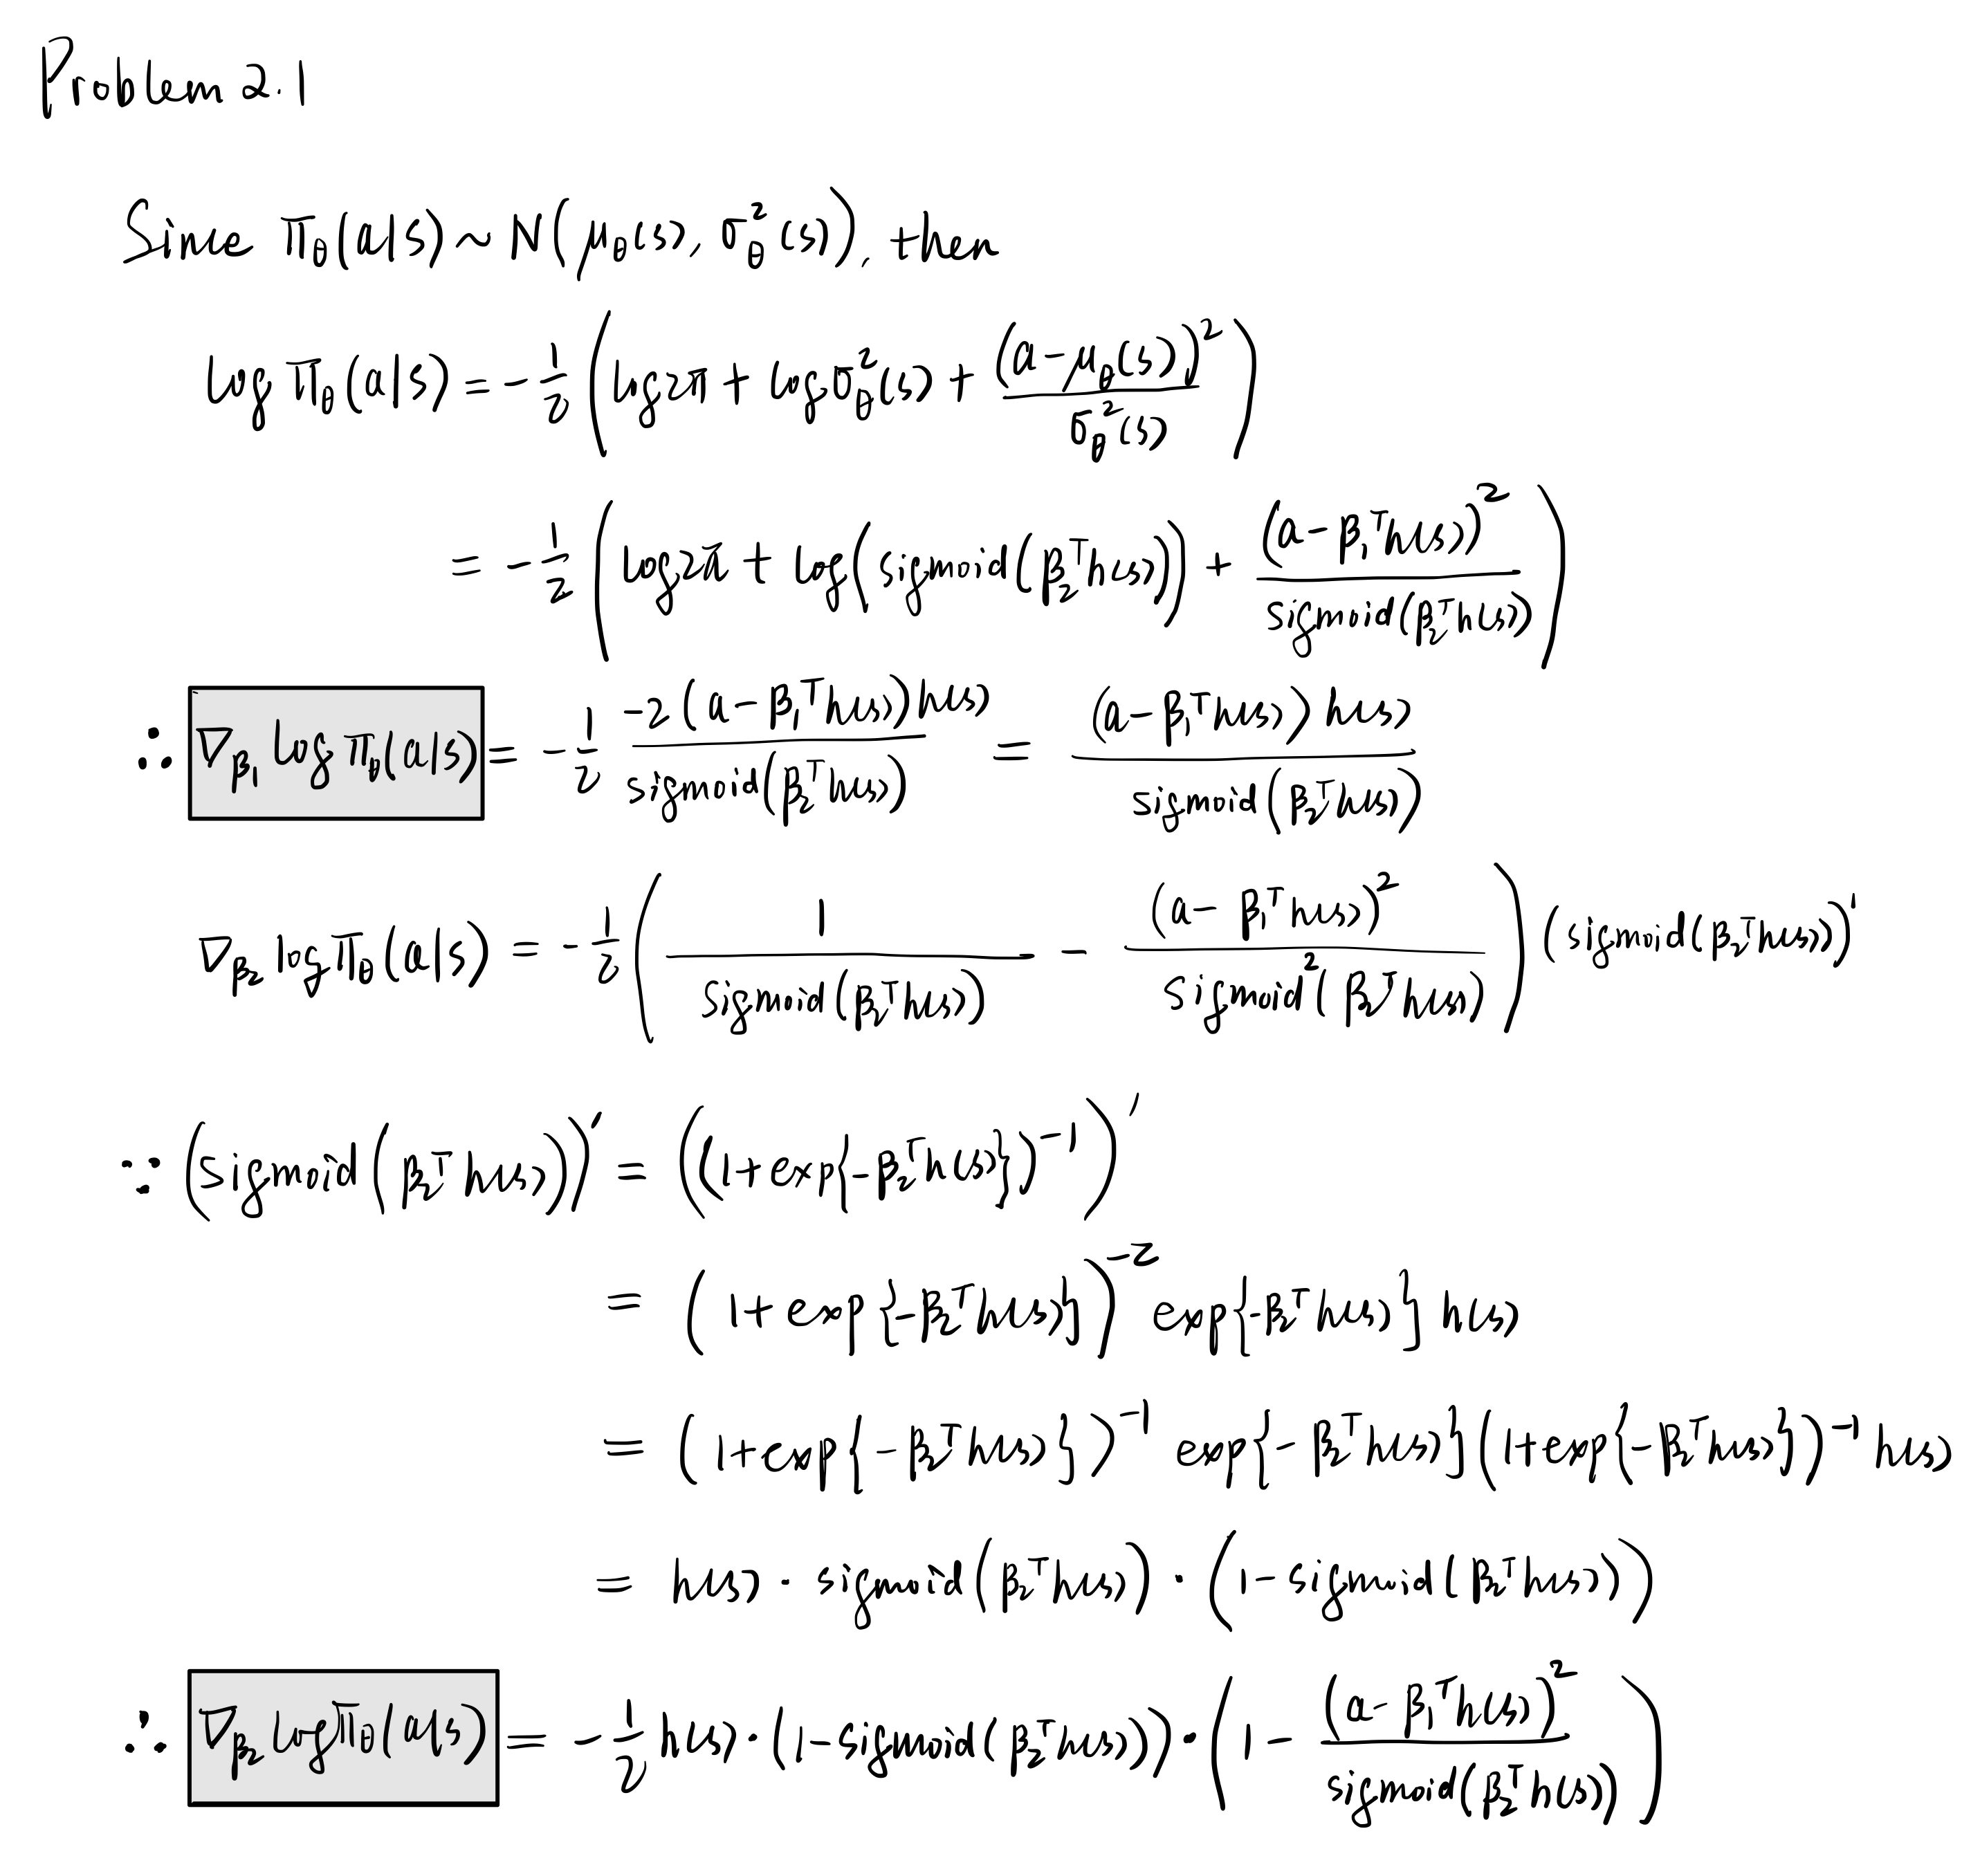 Problem 2.1
Since π_θ(a|s) ~ N(μ_θ(s), σ_θ²(s)), then
log π_θ(a|s) = -1/2 (log 2π + log σ_θ²(s) + (a - μ_θ(s))² / σ_θ²(s))
= -1/2 (log 2π + log(sigmoid(β₂ᵀh(s))) + (a - β₁ᵀh(s))² / sigmoid(β₂ᵀh(s)))
∴ ∇_β₁ log π_θ(a|s) = -1/2 · -2(a - β₁ᵀh(s))h(s) / sigmoid(β₂ᵀh(s)) = (a - β₁ᵀh(s))h(s) / sigmoid(β₂ᵀh(s))
∇_β₂ log π_θ(a|s) = -1/2 (1 / sigmoid(β₂ᵀh(s)) - (a - β₁ᵀh(s))² / sigmoid²(β₂ᵀh(s))) (sigmoid(β₂ᵀh(s)))'
∵ (sigmoid(β₂ᵀh(s)))' = ((1 + exp{-β₂ᵀh(s)})⁻¹)'
= (1 + exp{-β₂ᵀh(s)})⁻² exp{-β₂ᵀh(s)} h(s)
= (1 + exp{-β₂ᵀh(s)})⁻¹ exp{-β₂ᵀh(s)} (1 + exp{-β₂ᵀh(s)})⁻¹ h(s)
= h(s) · sigmoid(β₂ᵀh(s)) · (1 - sigmoid(β₂ᵀh(s)))
∴ ∇_β₂ log π_θ(a|s) = -1/2 h(s) · (1 - sigmoid(β₂ᵀh(s))) · (1 - (a - β₁ᵀh(s))² / sigmoid(β₂ᵀh(s)))